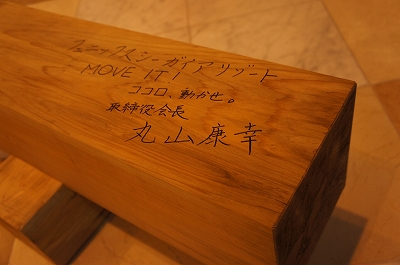 フェニックスシーガイアリゾート
MOVE IT!
ココロ、動かせ。
取締役会長
丸山康幸